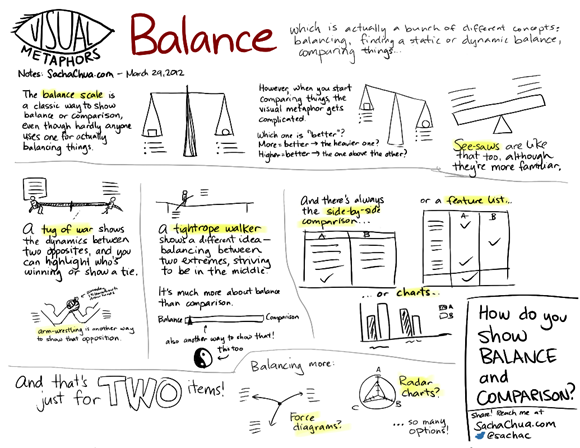 VISUAL
METAPHORS
Balance
which is actually a bunch of different concepts:
balancing, finding a static or dynamic balance,
comparing things...
Notes: SachaChua.com - March 29, 2012
The balance scale is
a classic way to show
balance or comparison,
even though hardly anyone
uses one for actually
balancing things.
However, when you start
comparing things, the
visual metaphor gets
complicated.
Which one is "better"?
More = better → the heavier one?
Higher = better → the one above the other?
See-saws are like
that too, although
they're more familiar.
A tug of war shows
the dynamics between
two opposites, and you
can highlight who's
winning or show a tie.
arm-wrestling is another way
to show that opposition.
A tightrope walker
shows a different idea—
balancing between
two extremes, striving
to be in the middle.
It's much more about balance
than comparison.
Balance Comparison
also another way to show that!
this too
And there's always
the side-by-side
comparison...
A B
or a feature list...
A B
...or charts...
A
B
And that's
just for TWO items!
Balancing more:
Force
diagrams?
Radar
charts?
A
B
C
...so many
options!
How do you
show
BALANCE
and
COMPARISON?
Share! Reach me at
SachaChua.com
@sachac